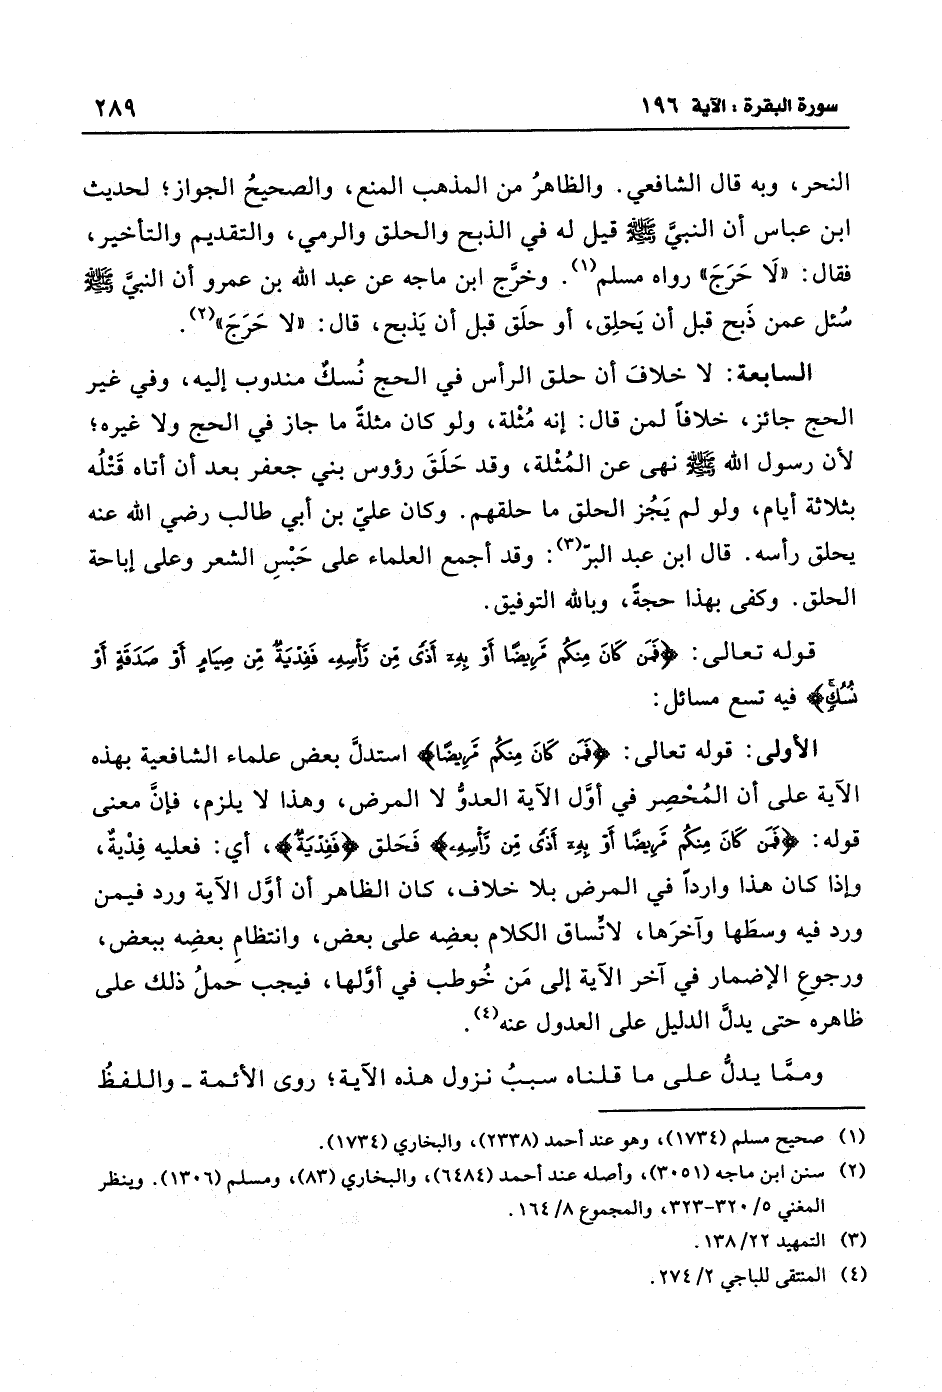 سورة البقرة : الآية ١٩٦
٢٨٩
النحر، وبه قال الشافعي. والظاهرُ من المذهب المنع، والصحيحُ الجواز؛ لحديث
ابن عباس أن النبيَّ ﷺ قيل له في الذبح والحلق والرمي، والتقديم والتأخير،
فقال: «لَا حَرَجَ» رواه مسلم(١). وخرَّج ابن ماجه عن عبد الله بن عمرو أن النبيَّ ﷺ
سُئل عمن ذَبح قبل أن يَحلِق، أو حلَق قبل أن يَذبح، قال: «لا حَرَجَ»(٢).
السابعة: لا خلافَ أن حلق الرأس في الحج نُسكٌ مندوب إليه، وفي غير
الحج جائز، خلافاً لمن قال: إنه مُثْلة، ولو كان مثلةً ما جاز في الحج ولا غيره؛
لأن رسول الله ﷺ نهى عن المُثْلة، وقد حَلَقَ رؤوس بني جعفر بعد أن أتاه قَتْلُه
بثلاثة أيام، ولو لم يَجُز الحلق ما حلقهم. وكان عليّ بن أبي طالب رضي الله عنه
يحلق رأسه. قال ابن عبد البرّ(٣): وقد أجمع العلماء على حَبْسِ الشعر وعلى إباحة
الحلق. وكفى بهذا حجةً، وبالله التوفيق.
قوله تعالى: ﴿فَمَن كَانَ مِنكُم مَّرِيضًا أَوْ بِهِۦٓ أَذًى مِّن رَّأْسِهِۦ فَفِدْيَةٌ مِّن صِيَامٍ أَوْ صَدَقَةٍ أَوْ
نُسُكٍۚ﴾ فيه تسع مسائل:
الأولى: قوله تعالى: ﴿فَمَن كَانَ مِنكُم مَّرِيضًا﴾ استدلَّ بعض علماء الشافعية بهذه
الآية على أن المُحْصِر في أوَّل الآية العدوُّ لا المرض، وهذا لا يلزم، فإنَّ معنى
قوله: ﴿فَمَن كَانَ مِنكُم مَّرِيضًا أَوْ بِهِۦٓ أَذًى مِّن رَّأْسِهِۦ﴾ فَحَلق ﴿فَفِدْيَةٌ﴾، أي: فعليه فِدْيةٌ،
وإذا كان هذا وارداً في المرض بلا خلاف، كان الظاهر أن أوَّل الآية ورد فيمن
ورد فيه وسطَها وآخرَها، لاتِّساق الكلام بعضِه على بعض، وانتظامِ بعضِه ببعض،
ورجوعِ الإضمار في آخر الآية إلى مَن خُوطب في أوَّلها، فيجب حملُ ذلك على
ظاهره حتى يدلَّ الدليل على العدول عنه(٤).
وممَّا يدلُّ على ما قلناه سببُ نزول هذه الآية؛ روى الأئمة ـ واللفظُ
(١) صحيح مسلم (١٧٣٤)، وهو عند أحمد (٢٣٣٨)، والبخاري (١٧٣٤).
(٢) سنن ابن ماجه (٣٠٥١)، وأصله عند أحمد (٦٤٨٤)، والبخاري (٨٣)، ومسلم (١٣٠٦). وينظر
المغني ٥/ ٣٢٠-٣٢٣، والمجموع ٨/ ١٦٤.
(٣) التمهيد ٢٢/ ١٣٨.
(٤) المنتقى للباجي ٢/ ٢٧٤.